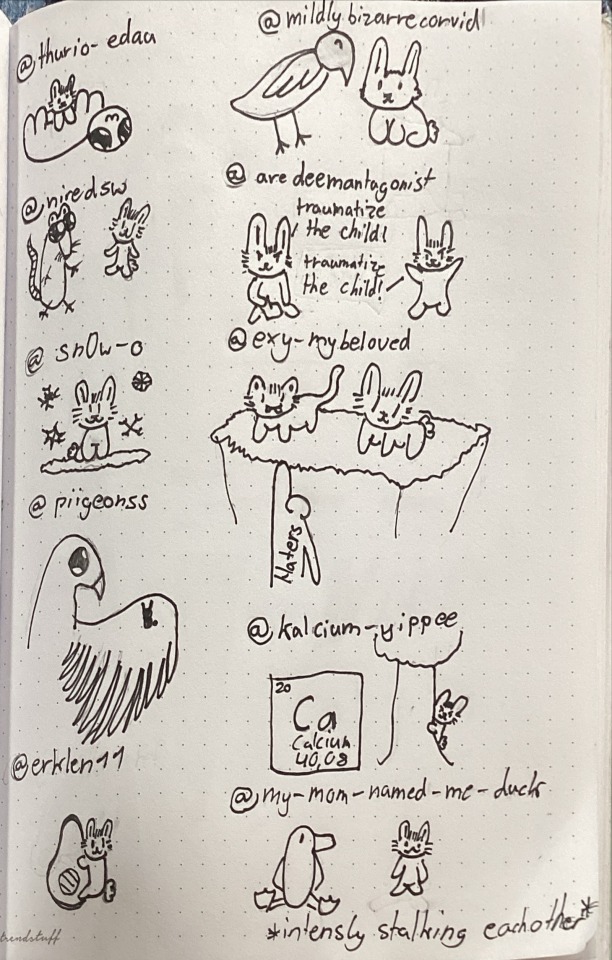 @thurio-edau
@mildly.bizarrecorvid
@niredsw
@aredeemantagonist
traumatize
the child!
traumatize
the child!
@sn0w-o
@exy-mybeloved
Haters
@piigeonss
@kalcium-yippee
20
Ca
Calcium
40,08
@erklen11
@my-mom-named-me-duck
*intensly stalking eachother*
trendstuff